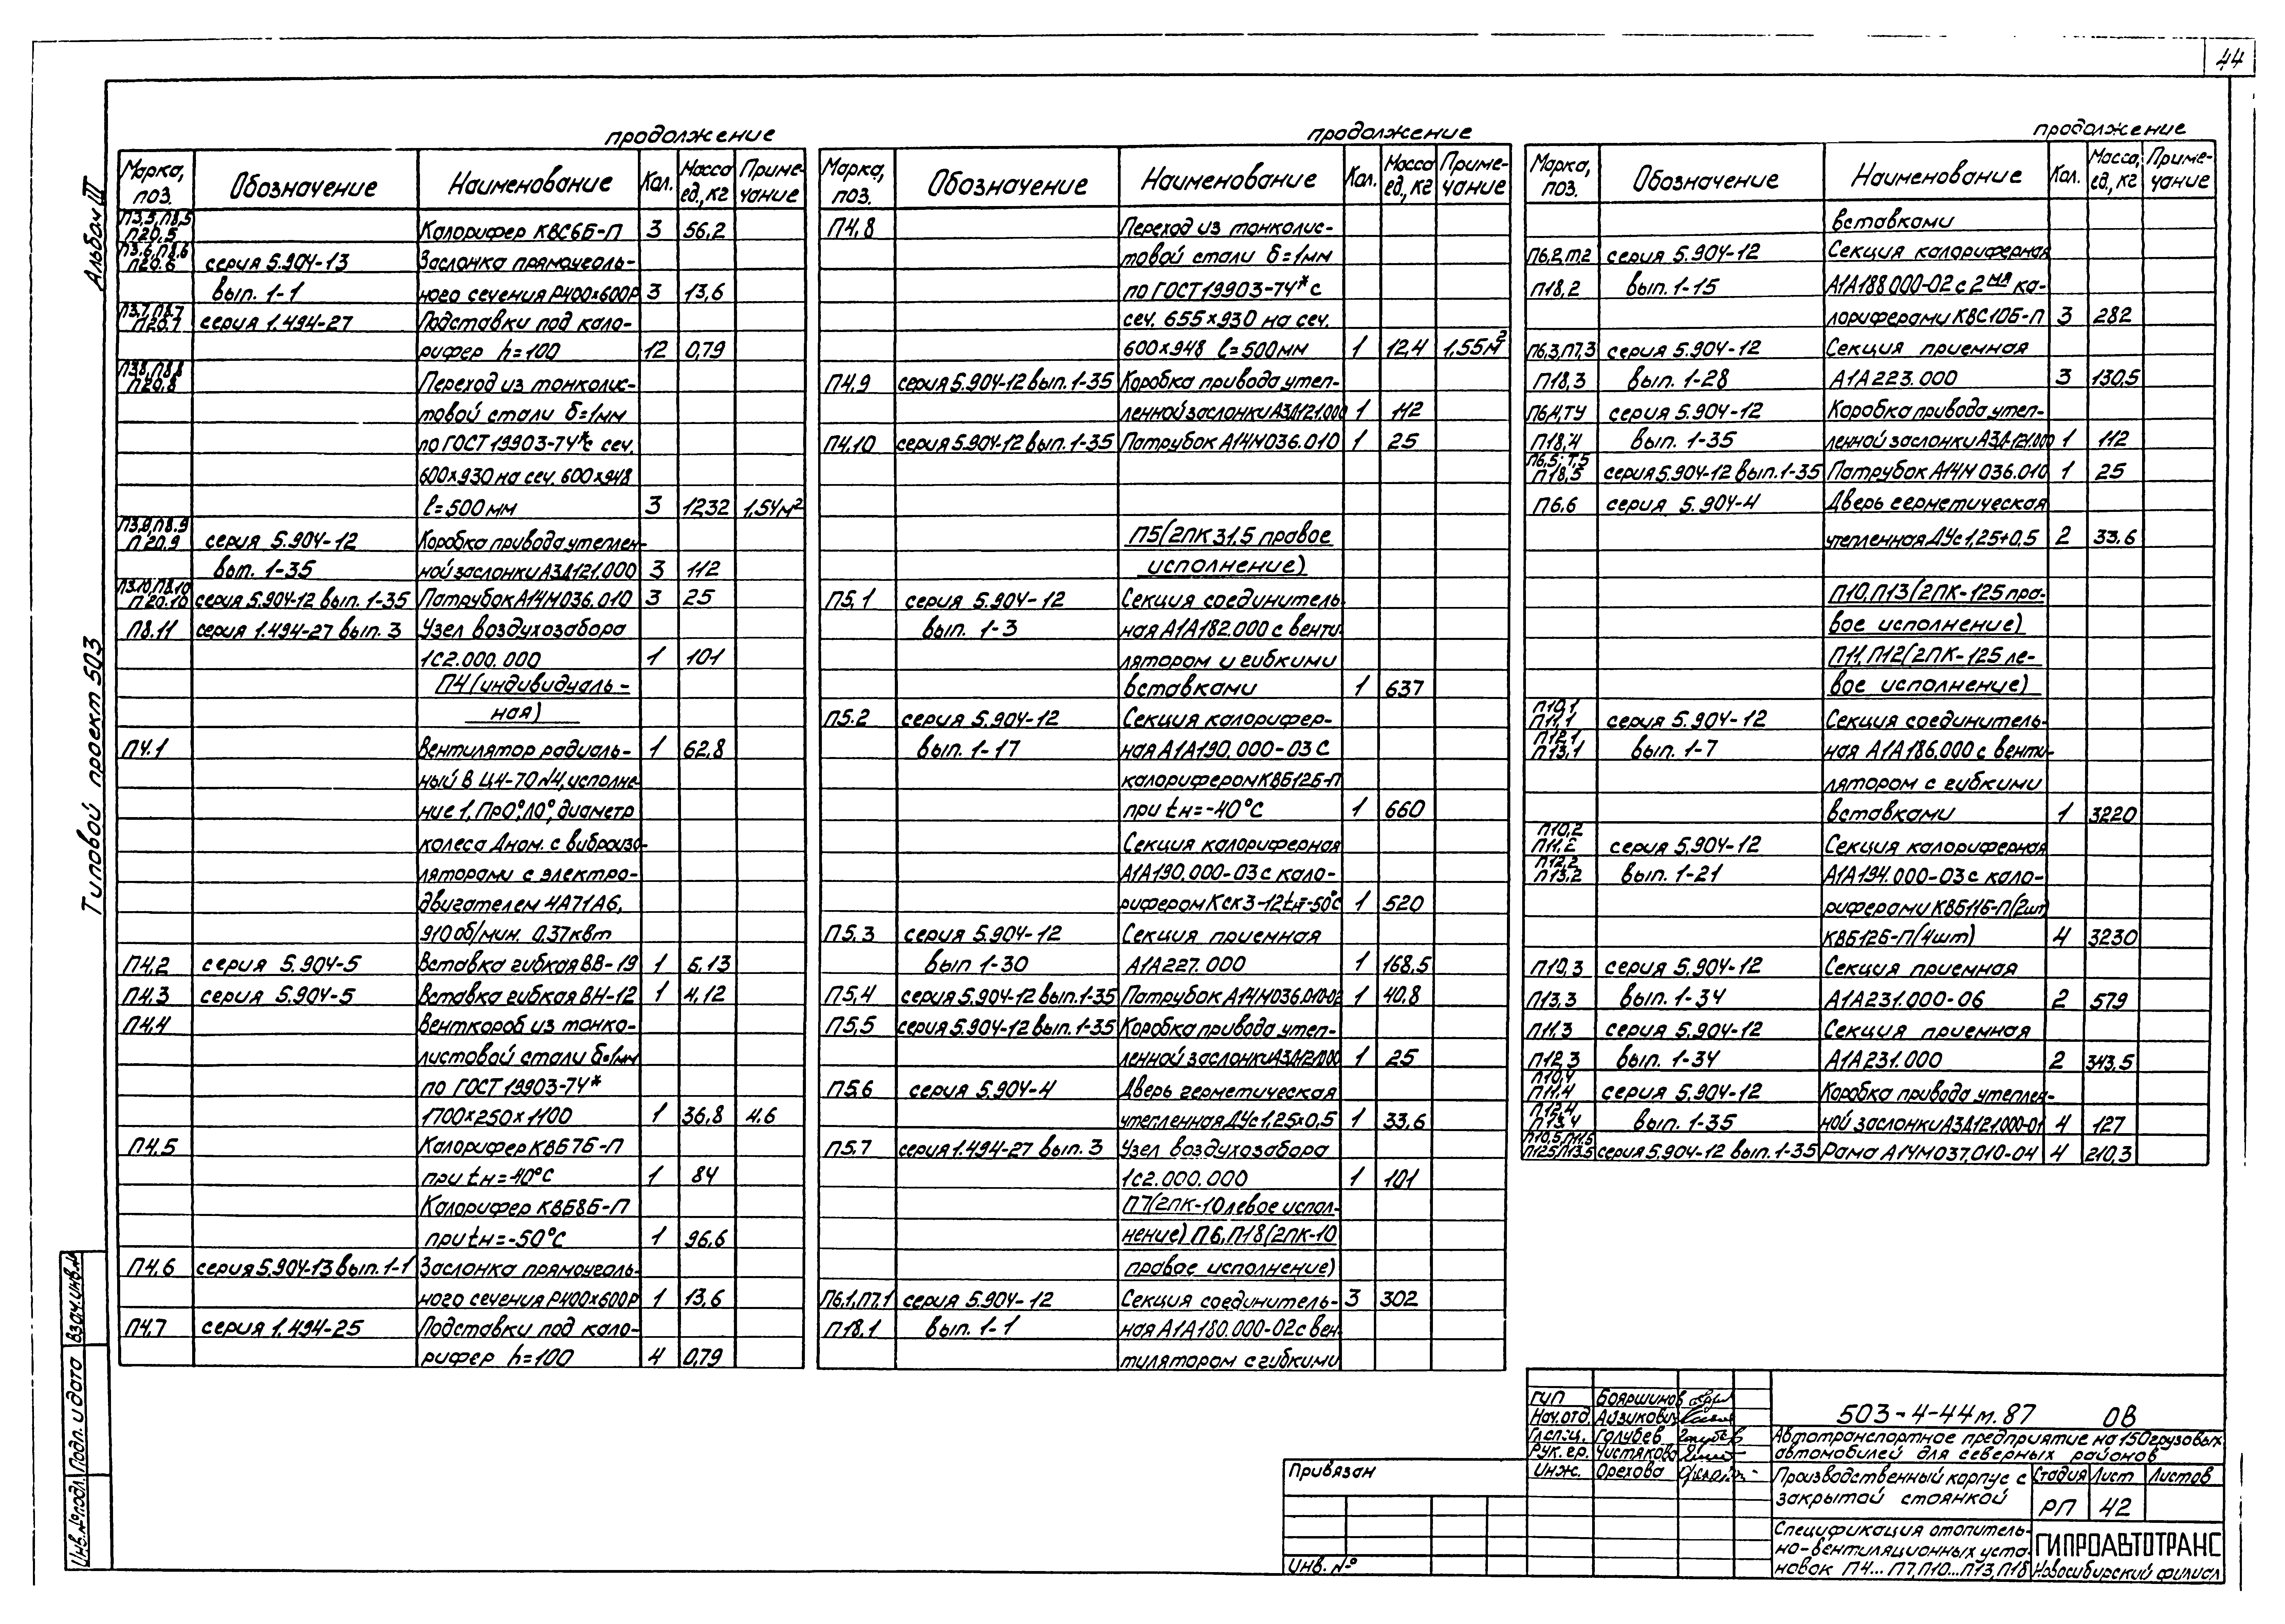 44
Альбом III
Типовой проект 503
продолжение
Марка, поз. Обозначение Наименование Кол. Масса ед., кг Приме- чание
П3,5, П8,5
П20,5 Калорифер КВС6Б-П 3 56,2
П3,6, П8,6
П20.6 серия 5.904-13 Заслонка прямоуголь-
вып. 1-1 ного сечения Р400х600Р 3 13,6
П3,7, П8.7
П20.7 серия 1.494-27 Подставки под кало-
рифер h=100 12 0,79
П3.8, П8.8
П20.8 Переход из тонколис-
товой стали δ=1мм
по ГОСТ 19903-74* с сеч.
600х930 на сеч. 600х948
l=500 мм 3 1232 1,54м²
П3,9, П8.9
П20.9 серия 5.904-12 Коробка привода утеплен-
вып. 1-35 ной заслонки АЗД121.000 3 112
П3.10, П8.10
П20.10 серия 5.904-12 вып. 1-35 Патрубок А14М036.010 3 25
П8.11 серия 1.494-27 вып. 3 Узел воздухозабора
1С2.000.000 1 101
П4 (индивидуаль-
ная)
П4.1 Вентилятор радиаль- 1 62,8
ный В Ц4-70 №4, исполне-
ние 1, Пр0°, Л0°, диаметр
колеса Дном. с виброизо-
ляторами с электро-
двигателем 4А71А6,
910 об/мин. 0.37квт
П4,2 серия 5.904-5 Вставка гибкая ВВ-19 1 5,13
П4.3 серия 5.904-5 Вставка гибкая ВН-12 1 4,12
П4.4 Венткороб из тонко-
листовой стали δ=1мм
по ГОСТ 19903-74*
1700х250х1100 1 36,8 4.6
П4.5 Калорифер КВБ7Б-П
при tн=-40°С 1 84
Калорифер КВБ8Б-П
при tн=-50°С 1 96,6
П4.6 серия 5.904-13 вып. 1-1 Заслонка прямоуголь-
ного сечения Р400х600Р 1 13,6
П4,7 серия 1.494-25 Подставки под кало-
рифер h=100 4 0,79
продолжение
Марка, поз. Обозначение Наименование Кол. Масса ед., кг Приме- чание
П4,8 Переход из тонколис-
товой стали δ=1мм
по ГОСТ 19903-74* с
сеч. 655х930 на сеч.
600х948 l=500мм 1 12,4 1,55м²
П4.9 серия 5.904-12 вып. 1-35 Коробка привода утеп-
ленной заслонки АЗД121.000 1 112
П4.10 серия 5.904-12 вып. 1-35 Патрубок А14М036.010 1 25
П5 (2ПК 31,5 правое
исполнение)
П5,1 серия 5.904-12 Секция соединитель-
вып. 1-3 ная А1А182.000 с венти-
лятором и гибкими
вставками 1 637
П5.2 серия 5.904-12 Секция калорифер-
вып. 1-17 ная А1А190.000-03 С
калорифером КВБ12Б-П
при tн=-40°С 1 660
Секция калориферная
А1А190.000-03 с кало-
рифером Кск3-12 tн=-50°С 1 520
П5,3 серия 5.904-12 Секция приемная
вып 1-30 А1А227.000 1 168,5
П5,4 серия 5.904-12 вып. 1-35 Патрубок А14М036.010-02 1 40,8
П5,5 серия 5.904-12 вып. 1-35 Коробка привода утеп-
ленной заслонки АЗД121.000 1 25
П5.6 серия 5.904-4 Дверь герметическая
утепленная ДУс 1,25х0,5 1 33,6
П5.7 серия 1.494-27 вып. 3 Узел воздухозабора
1С2.000.000 1 101
П7 (2ПК-10 левое испол-
нение) П6, П18 (2ПК-10
правое исполнение)
П6.1, П7,1 серия 5.904-12 Секция соединитель- 3 302
П18.1 вып. 1-1 ная А1А180.000-02 с вен-
тилятором с гибкими
продолжение
Марка, поз. Обозначение Наименование Кол. Масса, ед., кг Приме- чание
вставками
П6,2, П7,2 серия 5.904-12 Секция калориферная
П18,2 вып. 1-15 А1А188.000-02 с 2мя ка-
лориферами КВС10Б-П 3 282
П6,3, П7,3 серия 5.904-12 Секция приемная
П18.3 вып. 1-28 А1А223.000 3 130,5
П6.4, 7.4 серия 5.904-12 Коробка привода утеп-
П18,4 вып. 1-35 ленной заслонки АЗД-121.000 1 112
П6,5; 7.5
П18,5 серия 5.904-12 вып. 1-35 Патрубок А14М036.010 1 25
П6.6 серия 5.904-4 Дверь герметическая
утепленная ДУс 1,25+0,5 2 33,6
П10, П13 (2ПК-125 пра-
вое исполнение)
П11, П12 (2ПК-125 ле-
вое исполнение)
П10,1
П11,1 серия 5.904-12 Секция соединитель-
П12.1
П13,1 вып. 1-7 ная А1А186.000 с венти-
лятором с гибкими
вставками 1 3220
П10,2
П11,2 серия 5.904-12 Секция калориферная
П12,2
П13,2 вып. 1-21 А1А194.000-03 с кало-
риферами КВБ11Б-П (2шт)
КВБ12Б-П (4шт) 4 3230
П10,3 серия 5.904-12 Секция приемная
П13.3 вып. 1-34 А1А231.000-06 2 579
П11.3 серия 5.904-12 Секция приемная
П12,3 вып. 1-34 А1А231.000 2 343,5
П10,4
П11.4 серия 5.904-12 Коробка привода утеплен-
П12.4
П13.4 вып. 1-35 ной заслонки АЗД121.000-01 4 127
П10,5, П11,5
П12.5, П13.5 серия 5.904-12 вып. 1-35 Рама А14М037.010-04 4 210,3
ГИП Бояршинов
Нач.отд. Айзикович
Гл.спец. Голубев
Рук. гр. Чистякова
Инж. Орехова
503-4-44м.87 ОВ
Автотранспортное предприятие на 150 грузовых
автомобилей для северных районов
Производственный корпус с
закрытой стоянкой
Стадия Лист Листов
РП 42
Спецификация отопитель-
но-вентиляционных уста-
новок П4...П7, П10...П13, П18
ГИПРОАВТОТРАНС
Новосибирский филиал
Привязан
Инв. №
Инв.№подл. Подп. и дата Взам.инв.№